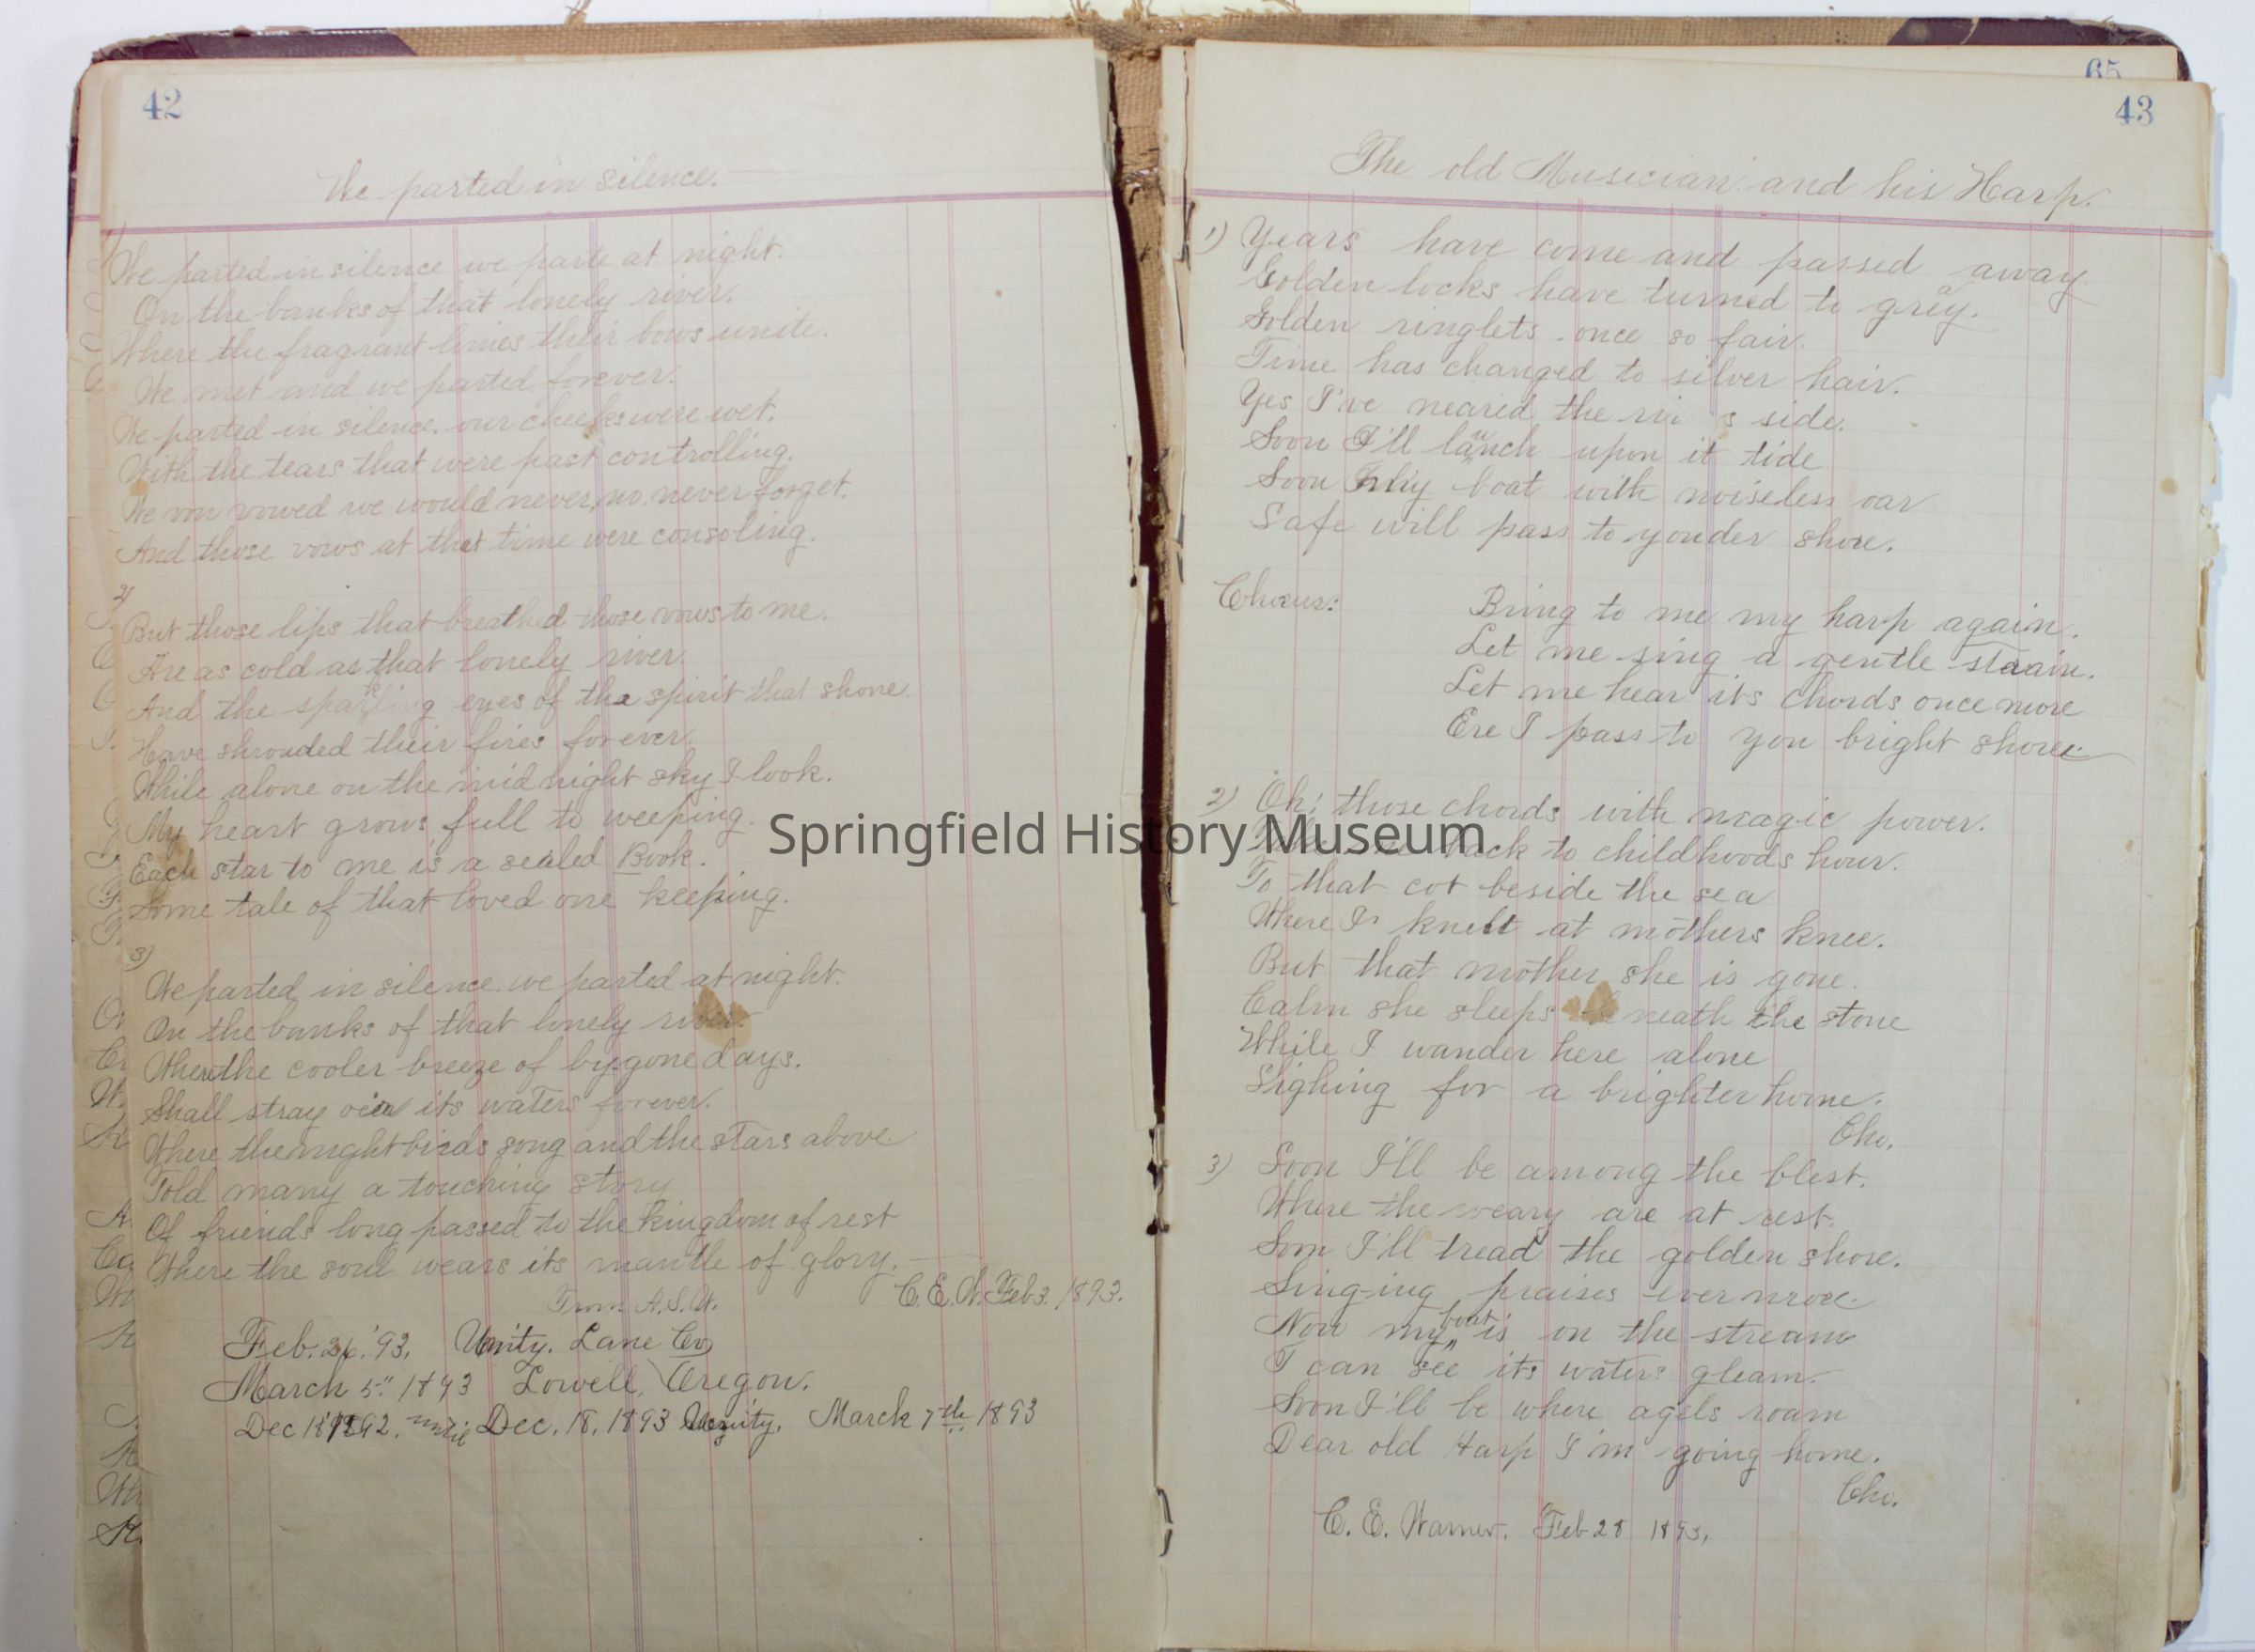 42
We parted in silence.
1)
We parted in silence we parte at night.
On the banks of that lonely river.
Where the fragrant limes their bows unite.
We met and we parted forever.
We parted in silence. our cheeks were wet.
With the tears that were past controlling.
We vow vowed we would never, no. never forget.
And those vows at that time were consoling.
2)
But those lips that breathed those vows to me.
Are as cold as that lonely river.
And the sparkling eyes of the spirit that shone.
Have shrouded their fires forever.
While alone on the mid night sky I look.
My heart grows full to weeping.
Each star to me is a sealed Book.
Some tale of that loved one keeping.
3)
We parted in silence. we parted at night.
On the banks of that lonely river.
Where the cooler breeze of bygone days.
Shall stray oer its waters forever.
Where the night birds song and the stars above.
Told many a touching story
Of friends long passed to the kingdom of rest
Where the soul wears its mantle of glory.
From A.S.W. C.E.W. Feb 3. 1893.
Feb. 26. '93. Unity. Lane Co.
March 5" 1893 Lowell, Oregon.
Dec 18 1892. until Dec. 18. 1893 Unity. March 7th 1893
65
43
The old Musician and his Harp.
1) Years have come and passed away.
Golden locks have turned to grey.
Golden ringlets once so fair.
Time has changed to silver hair.
Yes I've neared the ri s side.
Soon I'll launch upon it tide
Soon my boat with noiseless oar
Safe will pass to yonder shore.
Chorus: Bring to me my harp again.
Let me sing a gentle strain.
Let me hear its chords once more
Ere I pass to yon bright shore.
2) Oh! those chords with magic power.
Take me back to childhoods hour.
To that cot beside the sea
Where I knelt at mothers knee.
But that mother she is gone.
Calm she sleeps beneath the stone
While I wander here alone
Sighing for a brighter home.
Cho.
3) Soon I'll be among the blest.
Where the weary are at rest.
Soon I'll tread the golden shore.
Sing-ing praises ever more
Now my boat is on the stream
I can see its waters gleam.
Soon I'll be where agels roam
Dear old Harp I'm going home.
Cho.
C. E. Warner. Feb 28 1893.
Springfield History Museum